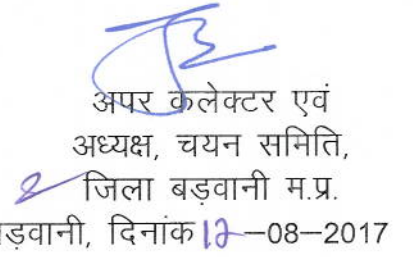 अपर कलेक्टर एवं
अध्यक्ष, चयन समिति,
जिला बड़वानी म.प्र.
ड़वानी, दिनांक 12–08–2017